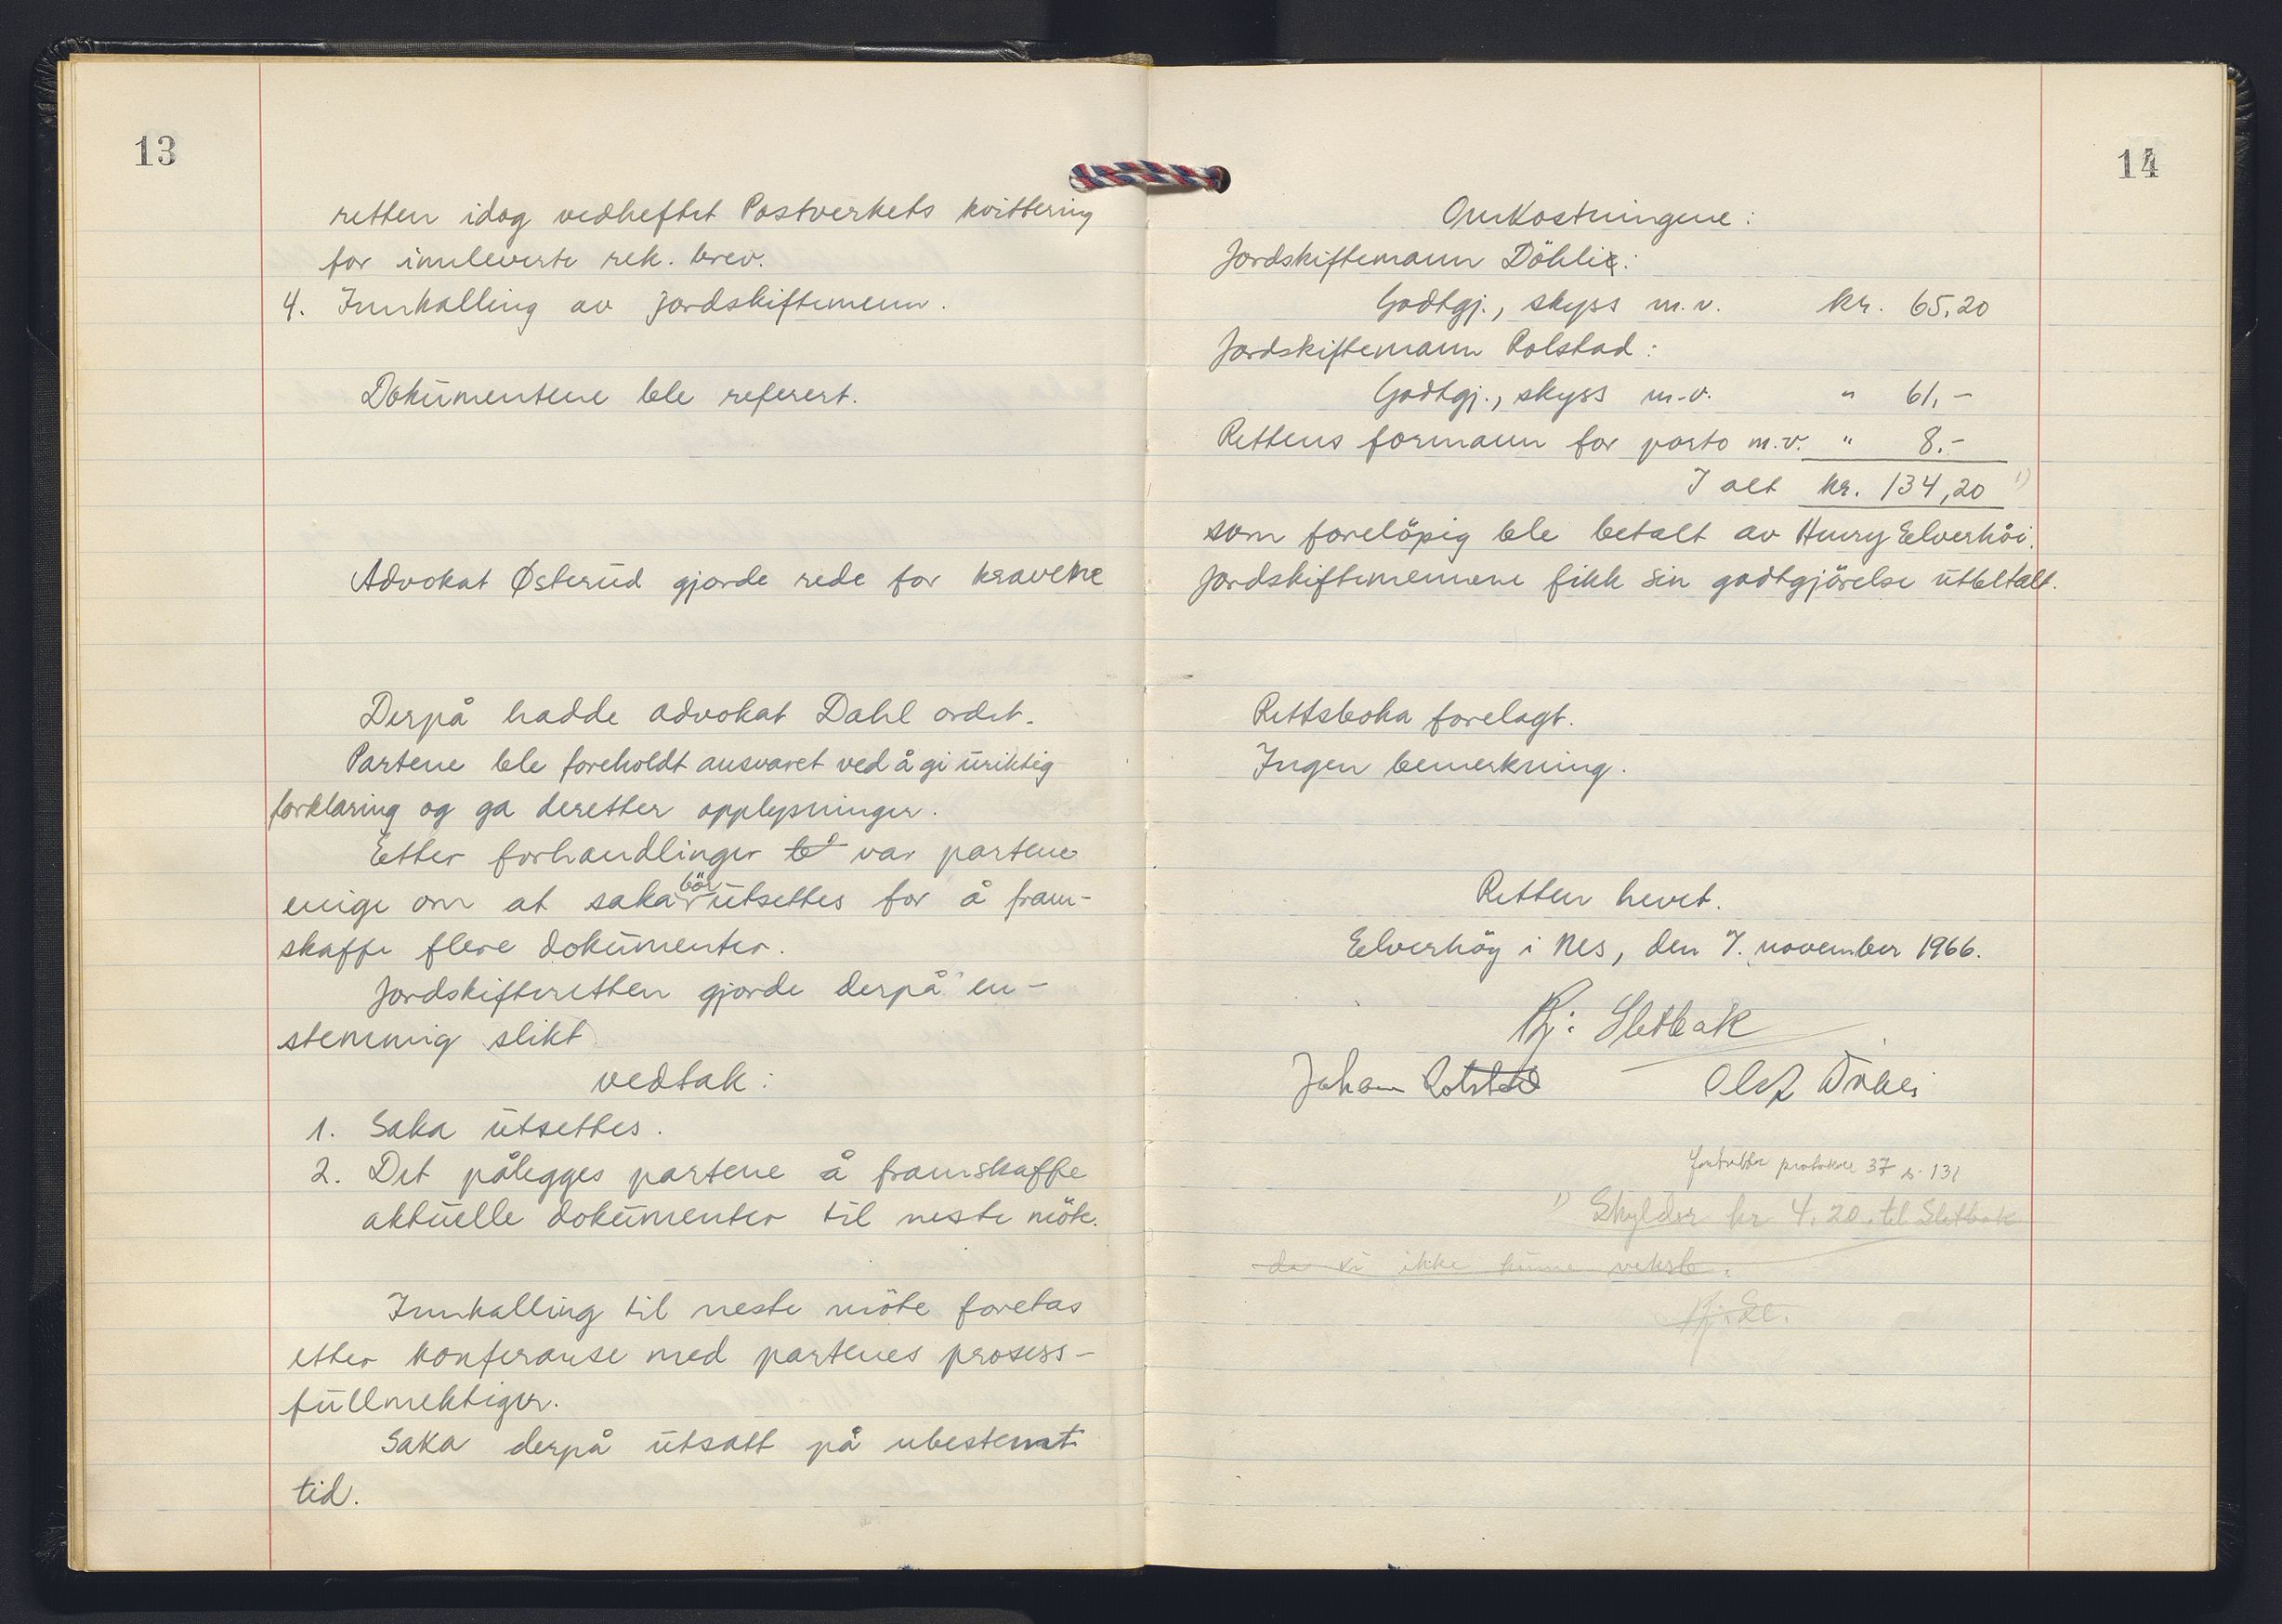 13
retten idag vedheftet Postverkets kvittering
for innleverte rek. brev.
4. Innkalling av jordskiftemenn.
Dokumentene ble referert.
Advokat Østerud gjorde rede for kravene
Derpå hadde advokat Dahl ordet.
Partene ble foreholdt ansvaret ved å gi uriktig
forklaring og ga deretter opplysninger.
Etter forhandlinger var partene
enige om at saka bör utsettes for å fram-
skaffe flere dokumenter.
Jordskifteretten gjorde derpå en-
stemmig slikt
vedtak:
1. Saka utsettes.
2. Det pålegges partene å framskaffe
aktuelle dokumenter til neste möte.
Innkalling til neste möte foretas
etter konferanse med partenes prosess-
fullmektiger.
Saka derpå utsatt på ubestemt
tid.
14
Omkostningene:
Jordskiftemann Döhli:
Godtgj., skyss m.v. kr. 65,20
Jordskiftemann Rolstad:
Godtgj., skyss m.v. " 61,-
Rettens formann for porto m.v. " 8.-
I alt kr. 134,20 1)
som forelöpig ble betalt av Henry Eelverhöi.
Jordskiftemennene fikk sin godtgjörelse utbetalt.
Rettsboka forelagt.
Ingen bemerkning.
Retten hevet.
Eelverhög i Nes, den 7. november 1966.
Kj: Sletbak
Johan Rolstad Olaf Döhli
protokoll 37 s. 131
1) Skylder kr 4.20. til Sletbak
da vi ikke kunne veksle.